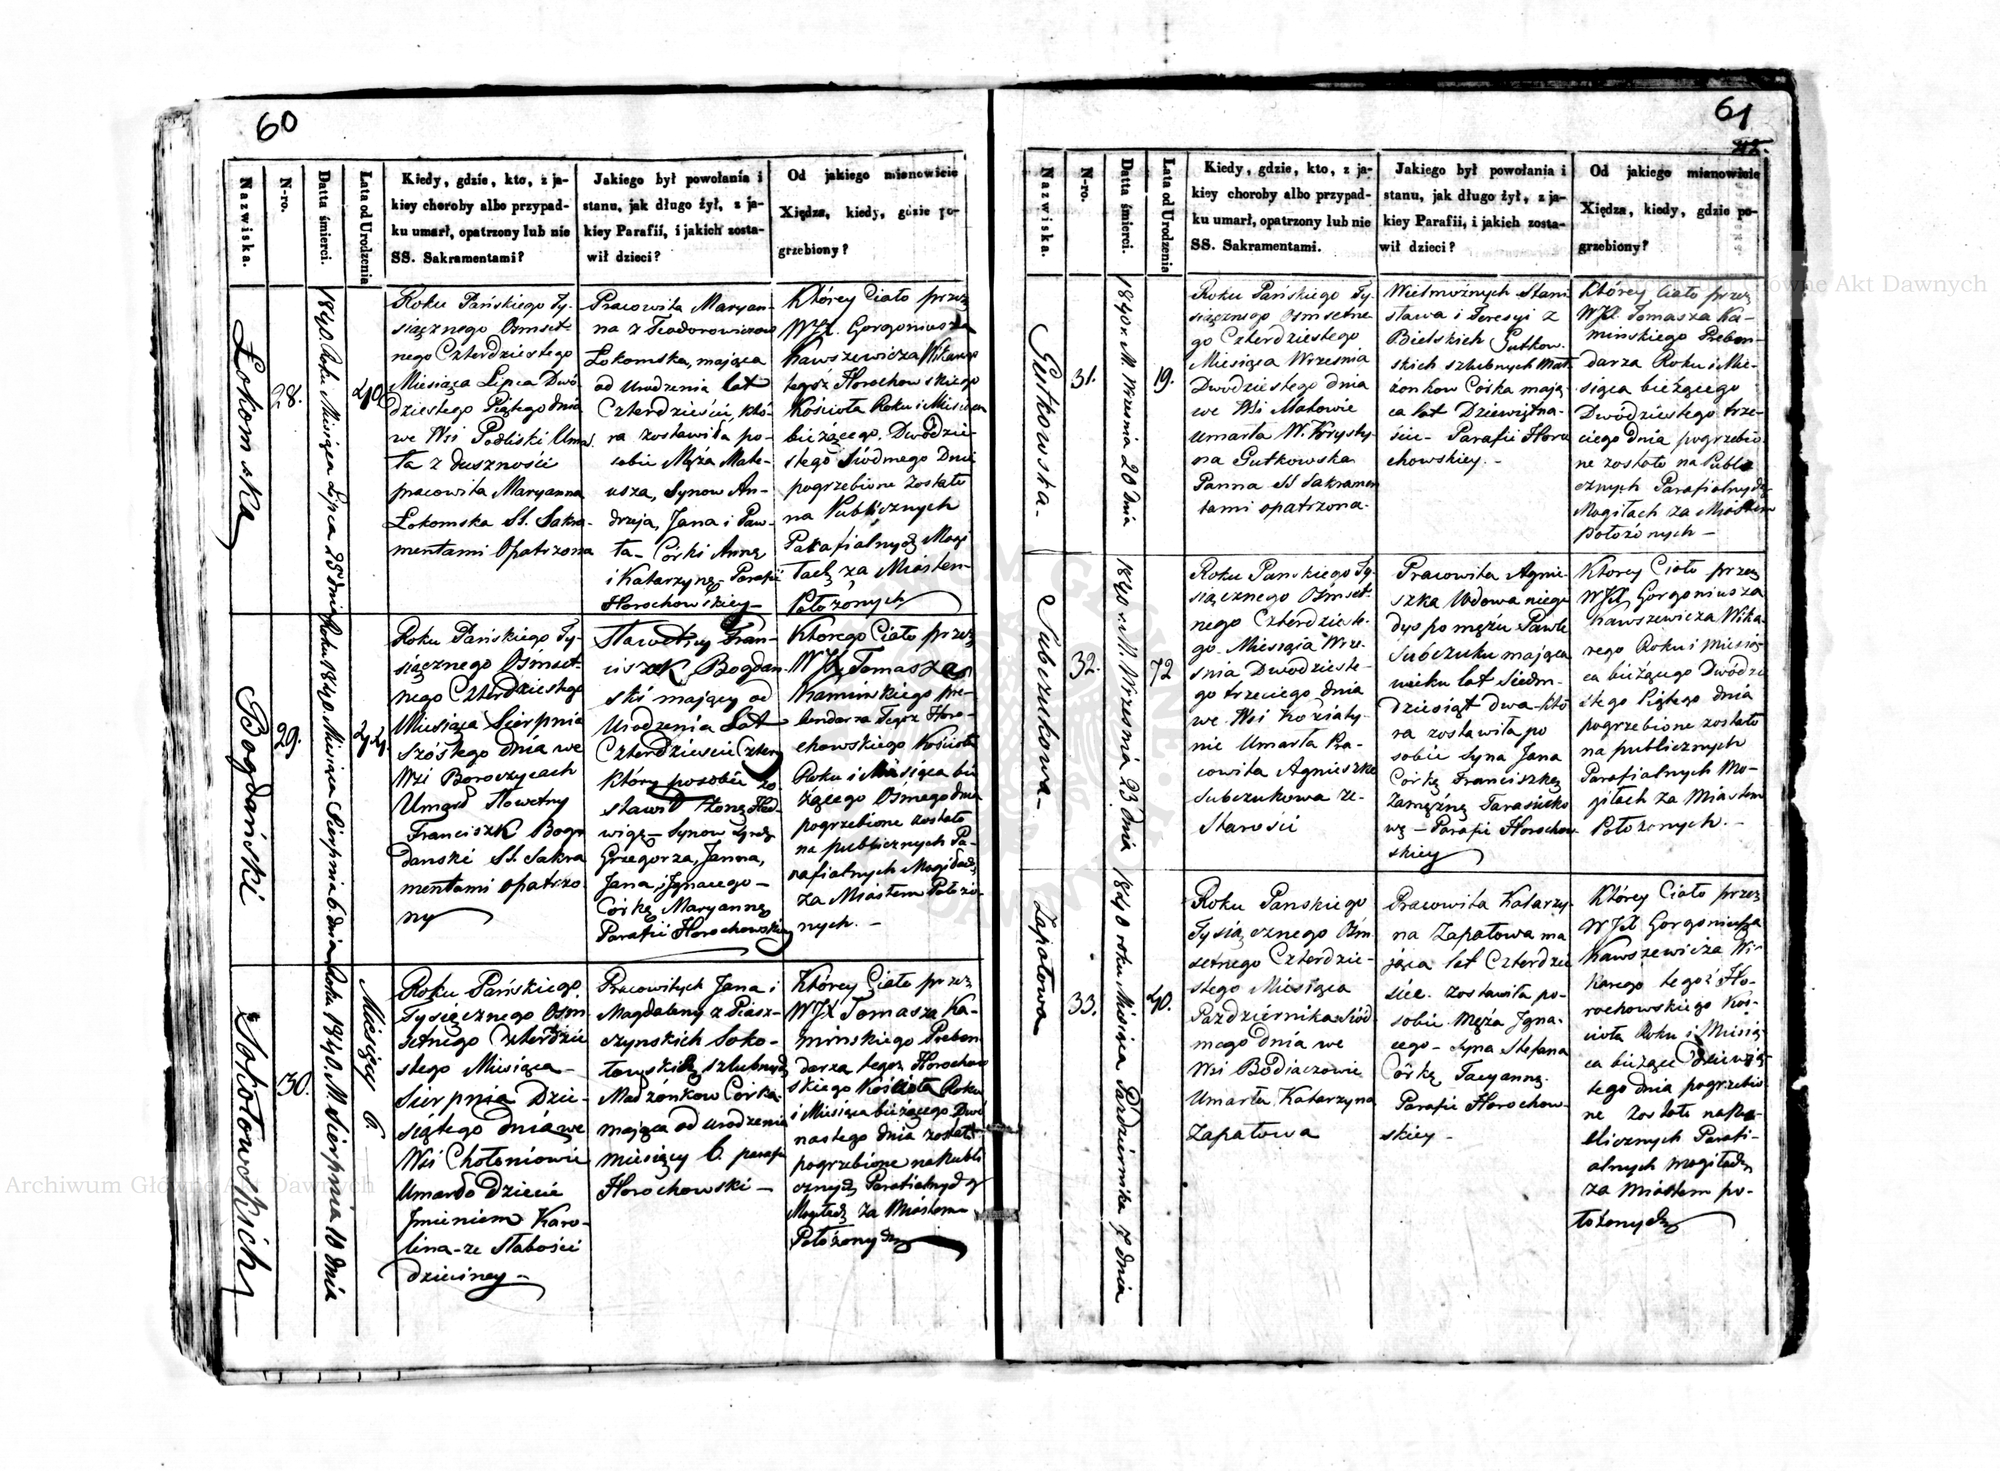 60
Nazwiska.
N-ro.
Datta śmierci.
Lata od Urodzenia
Kiedy, gdzie, kto, z ja-
kiey choroby albo przypad-
ku umarł, opatrzony lub nie
SS. Sakramentami?
Jakiego był powołania i
stanu, jak długo żył, z ja-
kiey Parafii, i jakich zosta-
wił dzieci?
Od jakiego mianowicie
Xiędza, kiedy, gdzie po-
grzebiony?
Łokomska
28.
1840. Roku Miesiąca Lipca 25 dnia
40
Roku Pańskiego Ty-
siącznego Ośmset-
nego Czterdziestego
Miesiąca Lipca Dwó-
dziestego Piątego dnia
we Wsi Podliski Umar
ła z duszności
pracowita Maryanna
Łokomska SS. Sakra-
mentami Opatrzona
Pracowita Maryan-
na z Teodorowiczow
Łokomska, mająca
od Urodzenia lat
Czterdzieści, któ-
ra zostawiła po-
sobie Męża Mate-
usza, Synow An-
drzeja, Jana i Paw-
ła - Córki Annę
i Katarzynę - Parafii
Horochowskiey -
Którey Ciało przez
WJX. Gorgoniusza
Kawszewicza Wikarego
tegoż Horochowskiego
Kościoła Roku i Miesiąca
bieżącego. Dwódzie-
stego Siódmego Dnia
pogrzebione zostało
na Publicznych
Parafialnych Mogi
łach za Miastem
Położonych
Bogdański
29.
Roku 1840. Miesiąca Sierpnia 6. dnia
44.
Roku Pańskiego Ty-
siącznego Ośmset-
nego Czterdziestego
Miesiąca Sierpnia
Szóstego dnia we
Wsi Boroczycach
Umarł Sławetny
Franciszek Bogn
danski SS. Sakra
mentami opatrzo
ny
Sławetny Fran-
ciszek Bogdan-
ski mający od
Urodzenia Lat
Czterdzieście Cztery
który posobie zo
stawił Żonę Jad
wigę - Synow
Grzegorza, Janna,
Jana, i Jgnacego -
Córkę Maryannę
Parafii Horochowskiey
Ktorego Ciało przez
WJX Tomasza
Kaminskiego pre-
bendarza Tegoż Horo-
chowskiego Kościoła
Roku i Miesiąca bie
żącego Osmego dnia
pogrzebione zostało
na publicznych Pa-
rafialnych Mogiłach
za Miastem Położo-
nych. -
Sokołowskich
30.
Roku 1840. M. Sierpnia 10 dnia
Miesięcy 6.
Roku Pańskiego
Tysięcznego Osm
setnego Czterdzie
stego Miesiąca
Sierpnia Dzie-
siątego dnia we
Wsi Chołoniowie
Umarło Dziecie
Jmieniem Karo-
lina - ze słabości
dziecinney -
Pracowitych Jana i
Magdaleny z Piasz-
czynskich Soko-
łowskich szlubnych
Madżonkow Córka
mająca od urodzenia
miesięcy 6. parafii
Horochowski -
Którey Ciało przez
WJX Tomasza Ka-
mińskiego Preben
darza tegoż Horochow
skiego Kościoła Roku
i Miesiąca bieżącego Dwó
nastego dnia zostało
pogrzebione na Publi
cznych Parafialnych
Mogiłach za Miastem
Położonych
61
Nazwiska.
N-ro.
Datta śmierci.
Lata od Urodzenia
Kiedy, gdzie, kto, z ja-
kiey choroby albo przypad-
ku umarł, opatrzony lub nie
SS. Sakramentami.
Jakiego był powołania i
stanu, jak długo żył, z ja-
kiey Parafii, i jakich zosta-
wił dzieci?
Od jakiego mianowicie
Xiędza, kiedy, gdzie po-
grzebiony?
Gutkowska.
31.
1840 r. M. Września 20 dnia
19.
Roku Pańskiego Ty-
siącznego Ośmsetne
go Czterdziestego
Miesiąca Września
Dwodziestego dnia
we Wsi Małowie
umarła W. Krysty-
na Gutkowska
Panna SS Sakramen
tami opatrzona.
Wielmożnych Stani
sława i Teresyi z
Bielskich Gutkow-
skich szlubnych Mał
żonkow Córka mają
ca lat Dziewiętna-
ście - Parafii Horo
chowskiey. -
Którey Ciało przez
WJX. Tomasza Ka-
minskiego Preben-
darza Roku i Mie-
siąca bieżącego
Dwódziestego trze-
ciego dnia pogrzebio
ne zostało na Publi
cznych Parafialnych
Mogiłach za Miastem
położonych -
Subczukowa -
32.
1840 r. M. Września 23 dnia
72
Roku Panskiego Ty-
siącznego Ośmset-
nego Czterdzieste-
go. Miesiąca Wrze-
snia Dwodzieste-
go trzeciego dnia
we Wsi Koziaty-
nie Umarła Pra-
cowita Agnieszka
Subczukowa ze-
Starości
Pracowita Agnie-
szka Wdowa niegu
dys po mężu Pawle
Subczuku mająca
wieku lat Siedm-
dziesiąt dwa - któ
ra zostawiła po
sobie Syna Jana
Córkę Franciszkę
Zamężnę Tarasiuko
wę - Parafii Horochow-
skiey
Ktorey Ciało przez
WJX Gorgoniusza
Kawszewicza Wika-
rego Roku i miesią
ca bieżącego Dwódzie
stego Piątego dnia
pogrzebione zostało
na publicznych
Parafialnych Mo-
giłach za Miastem
Położonych. -
Zapałowa
33.
1840 roku Miesiąca Pazdziernika 7 dnia
40.
Roku Panskiego
Tysiącznego Ośm
setnego Czterdzie-
stego Miesiąca
Pazdziernika Siód
mego dnia we
Wsi Bodiaczowie
Umarła Katarzyna
Zapałowa
Pracowita Katarzy-
na Zapałowa ma
jąca lat Czterdzie
ście. zostawiła po-
sobie Męża Jgna-
cego - Syna Stefana
Córkę Tacyannę.
Parafii Horochow-
skiey -
Którey Ciało przez
WJX Gorgoniusza
Kawszewicza Wi-
karego tegoż Ho-
rochowskiego Koś-
cioła Roku i Miesią
ca bieżące Dziewią
tego dnia pogrzebio
ne zostało na Pu-
blicznych Parafi-
alnych mogiłach
za Miastem po-
łożonych
Archiwum Główne Akt Dawnych
Archiwum Główne Akt Dawnych